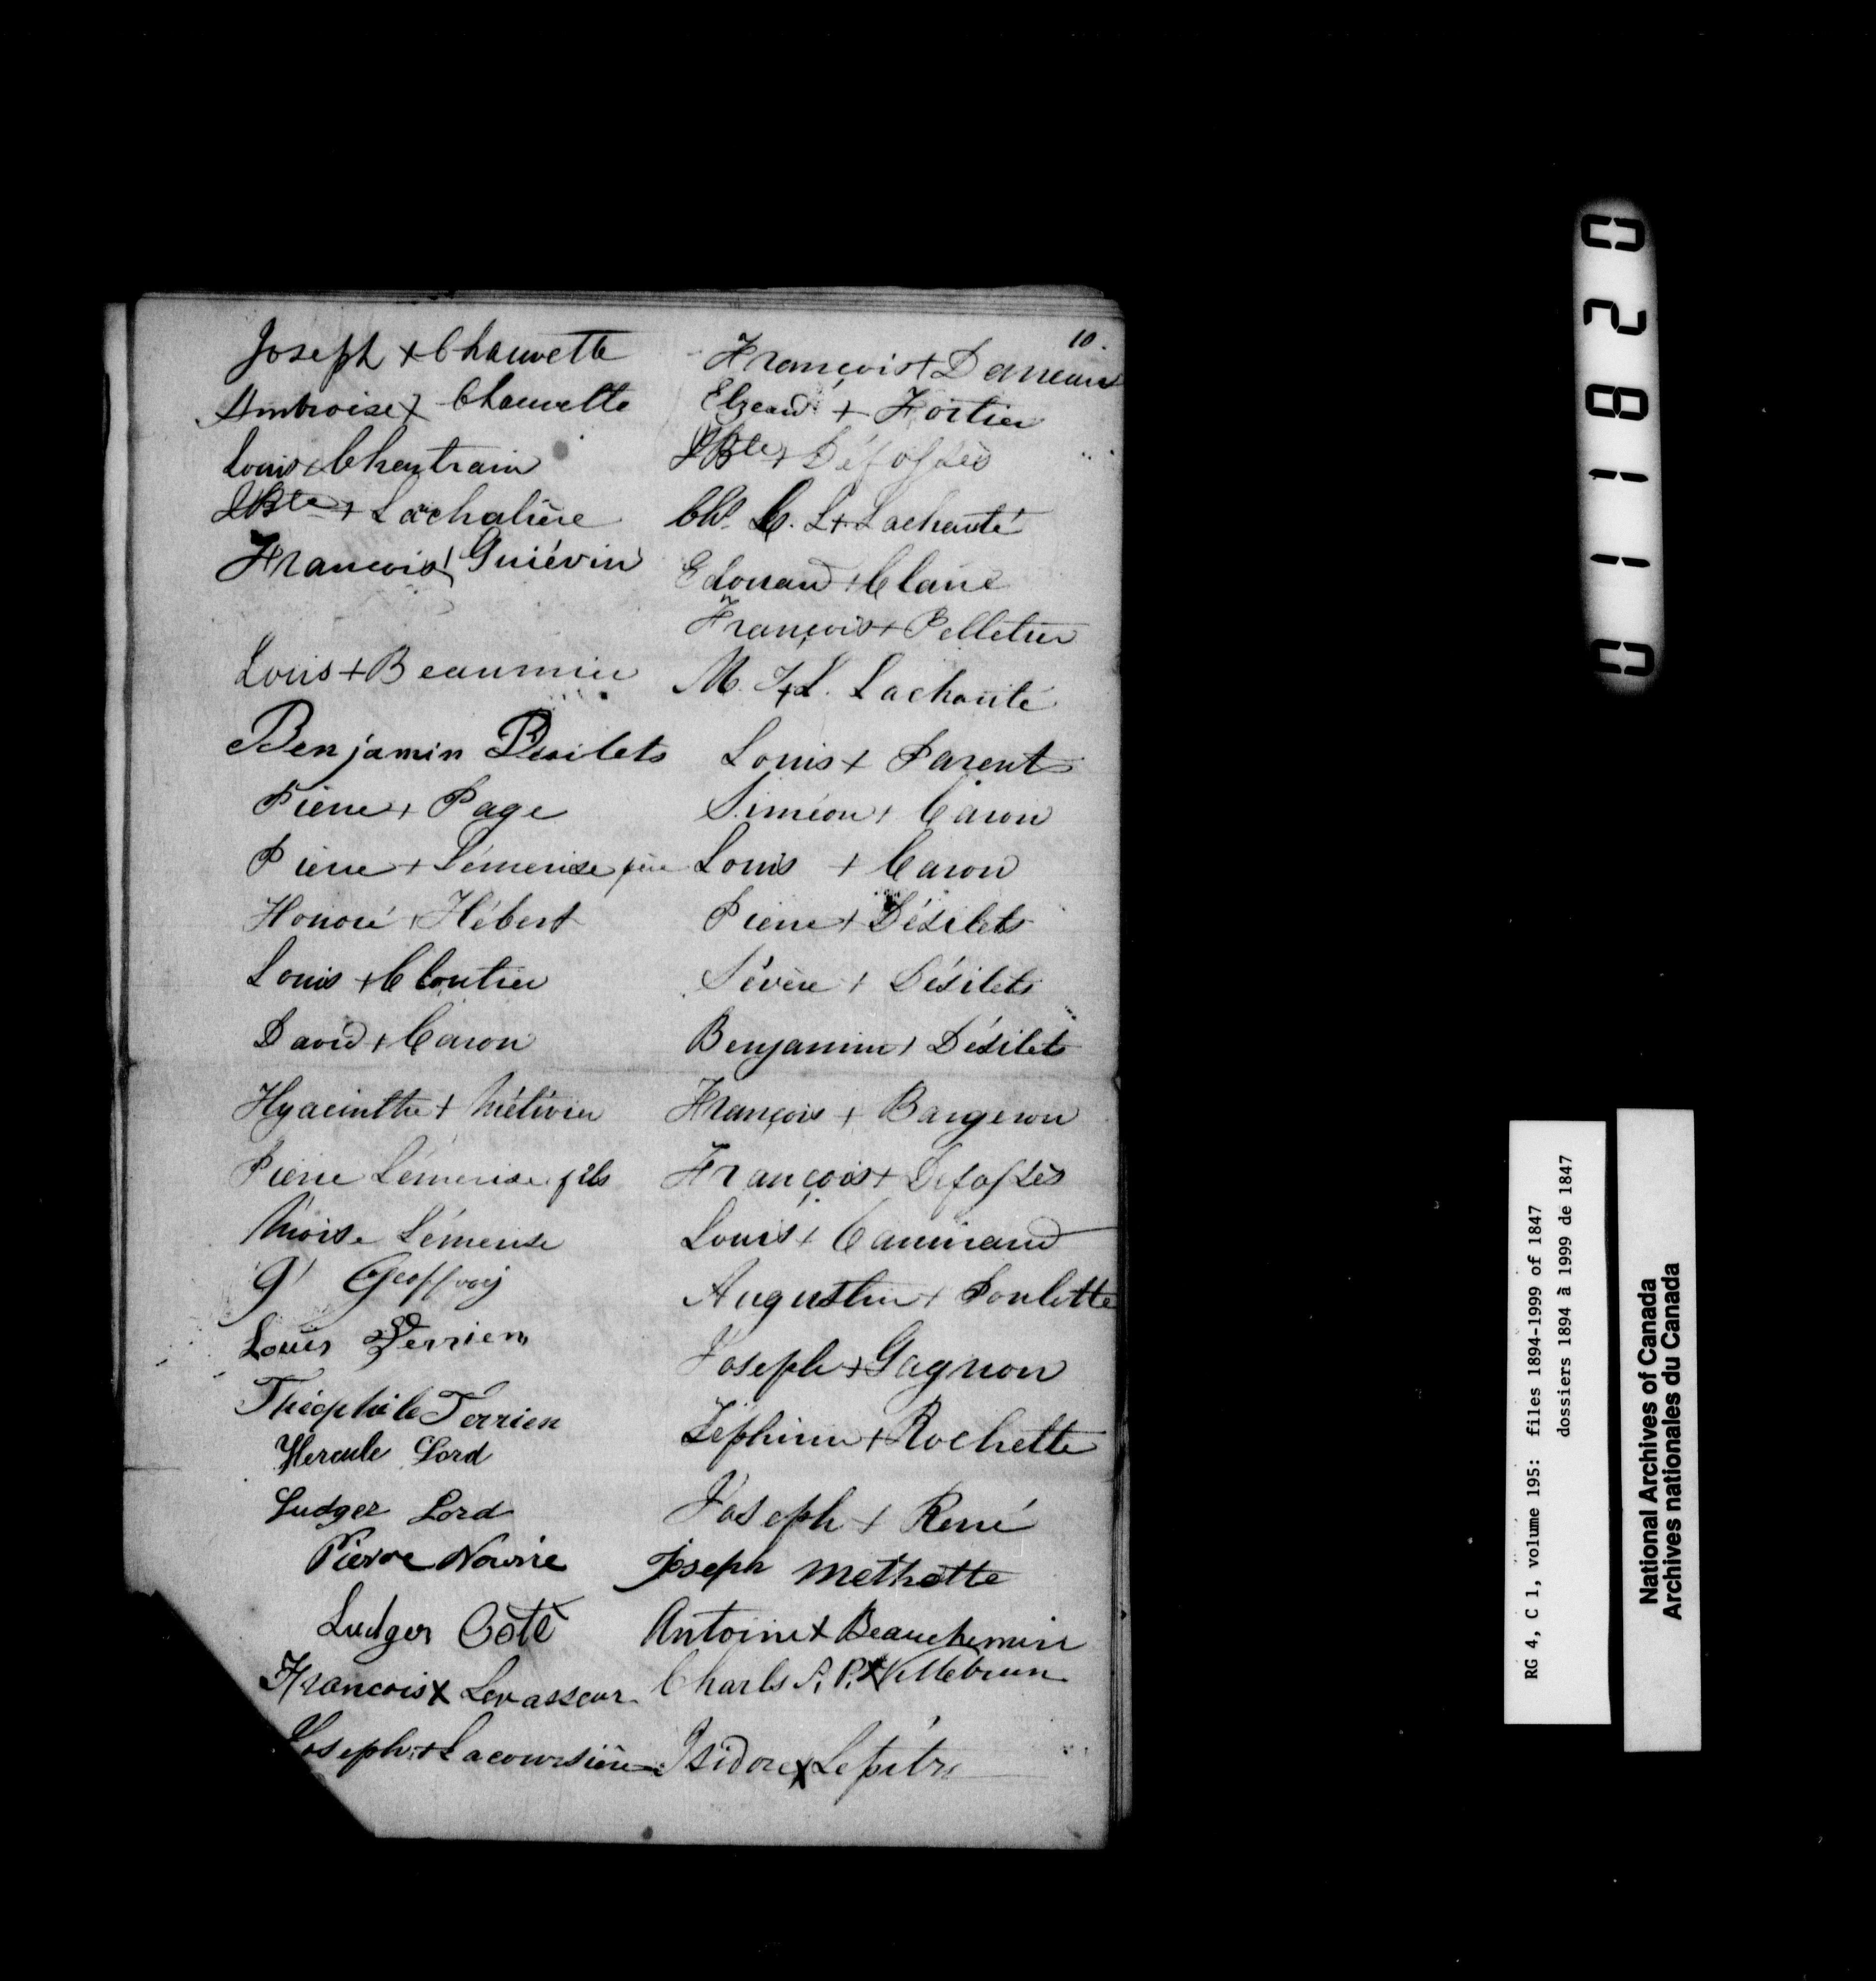 10.
Joseph + Chauvette
Ambroise + Chauvette
Louis + Chentrain
JBte + Lachalière
Francois + Guiévin
Louis + Beaumier
Benjamin Désilets
Pierre + Page
Pierre + Lémerise père
Honoré + Hébert
Louis + Cloutier
David + Caron
Hyacinthe + Métivier
Pierre Lémerise fils
Moise Lémerise
G Geoffroy
Louis Terrien
Théophile Terrien
Hercule Lord
Ludger Lord
Pierre Nourie
Ludger Coté
Francois X Levasseur
Joseph + Lacoursière
François + Darreau
Elzear + Fortier
JBte + Défossés
Chs. C. L + Lachauté
Edouard + Claire
François + Pelletier
M. F + L. Lachauté
Louis + Parent
Siméon + Caron
Louis + Caron
Pierre + Désilets
Sévère + Désilets
Benjamin + Désilets
François + Bargeron
François + Defossés
Louis + Camirand
Augustin + Poulette
Joseph + Gagnon
Zéphirin + Rochette
Joseph + René
Joseph Methotte
Antoine X Beauchemin
Charls P. P. X Villebrun
Isidore X Lepitre
0 1 1 8 2 0
RG 4, C 1, volume 195: files 1894-1999 of 1847
dossiers 1894 à 1999 de 1847
National Archives of Canada
Archives nationales du Canada